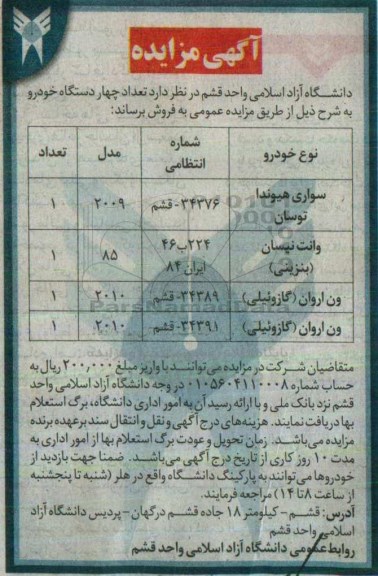 آگهی مزایده
دانشگاه آزاد اسلامی واحد قشم در نظر دارد تعداد چهار دستگاه خودرو
به شرح ذیل از طریق مزایده عمومی به فروش برساند:
نوع خودرو شماره انتظامی مدل تعداد
سواری هیوندا توسان ۳۴۳۷۶- قشم ۲۰۰۹ ۱
وانت نیسان (بنزینی) ۲۲۴ب۴۶ ایران ۸۴ ۸۵ ۱
ون اروان (گازوئیلی) ۳۴۳۸۹- قشم ۲۰۱۰ ۱
ون اروان (گازوئیلی) ۳۴۳۹۱- قشم ۲۰۱۰ ۱
متقاضیان شرکت در مزایده می‌توانند با واریز مبلغ ۲۰۰,۰۰۰ ریال به
حساب شماره ۰۱۰۵۶۰۴۱۱۰۰۰۸ در وجه دانشگاه آزاد اسلامی واحد
قشم نزد بانک ملی و با ارائه رسید آن به امور اداری دانشگاه، برگ استعلام
بها دریافت نمایند. هزینه‌های درج آگهی و نقل و انتقال سند برعهده برنده
مزایده می‌باشد. زمان تحویل و عودت برگ استعلام بها از امور اداری به
مدت ۱۰ روز کاری از تاریخ درج آگهی می‌باشد. ضمنا جهت بازدید از
خودروها می‌توانند به پارکینگ دانشگاه واقع در هلر (شنبه تا پنجشنبه
از ساعت ۸ تا ۱۴) مراجعه فرمایند.
آدرس: قشم - کیلومتر ۱۸ جاده قشم درگهان - پردیس دانشگاه آزاد
اسلامی واحد قشم
روابط عمومی دانشگاه آزاد اسلامی واحد قشم